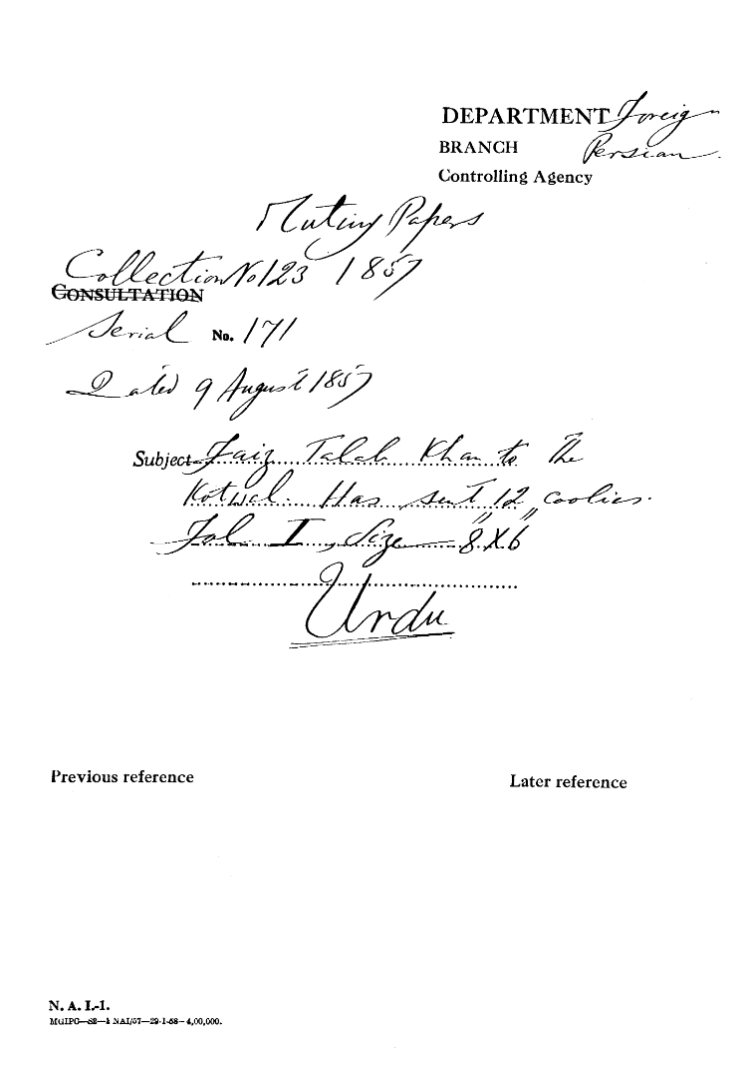 DEPARTMENT Foreign
BRANCH Persian.
Controlling Agency
Mutiny Papers
Collection No 123 1857
CONSULTATION
Serial No. 171
Dated 9 August 1857
Subject Faiz Talab Khan to the
Kotwal. Has sent 12 coolies.
Fol. I, Size 8" X 6"
Urdu
Previous reference
Later reference
N. A. I.-1.
MGIPC—S2—1 NAI/57—29-1-58—4,00,000.